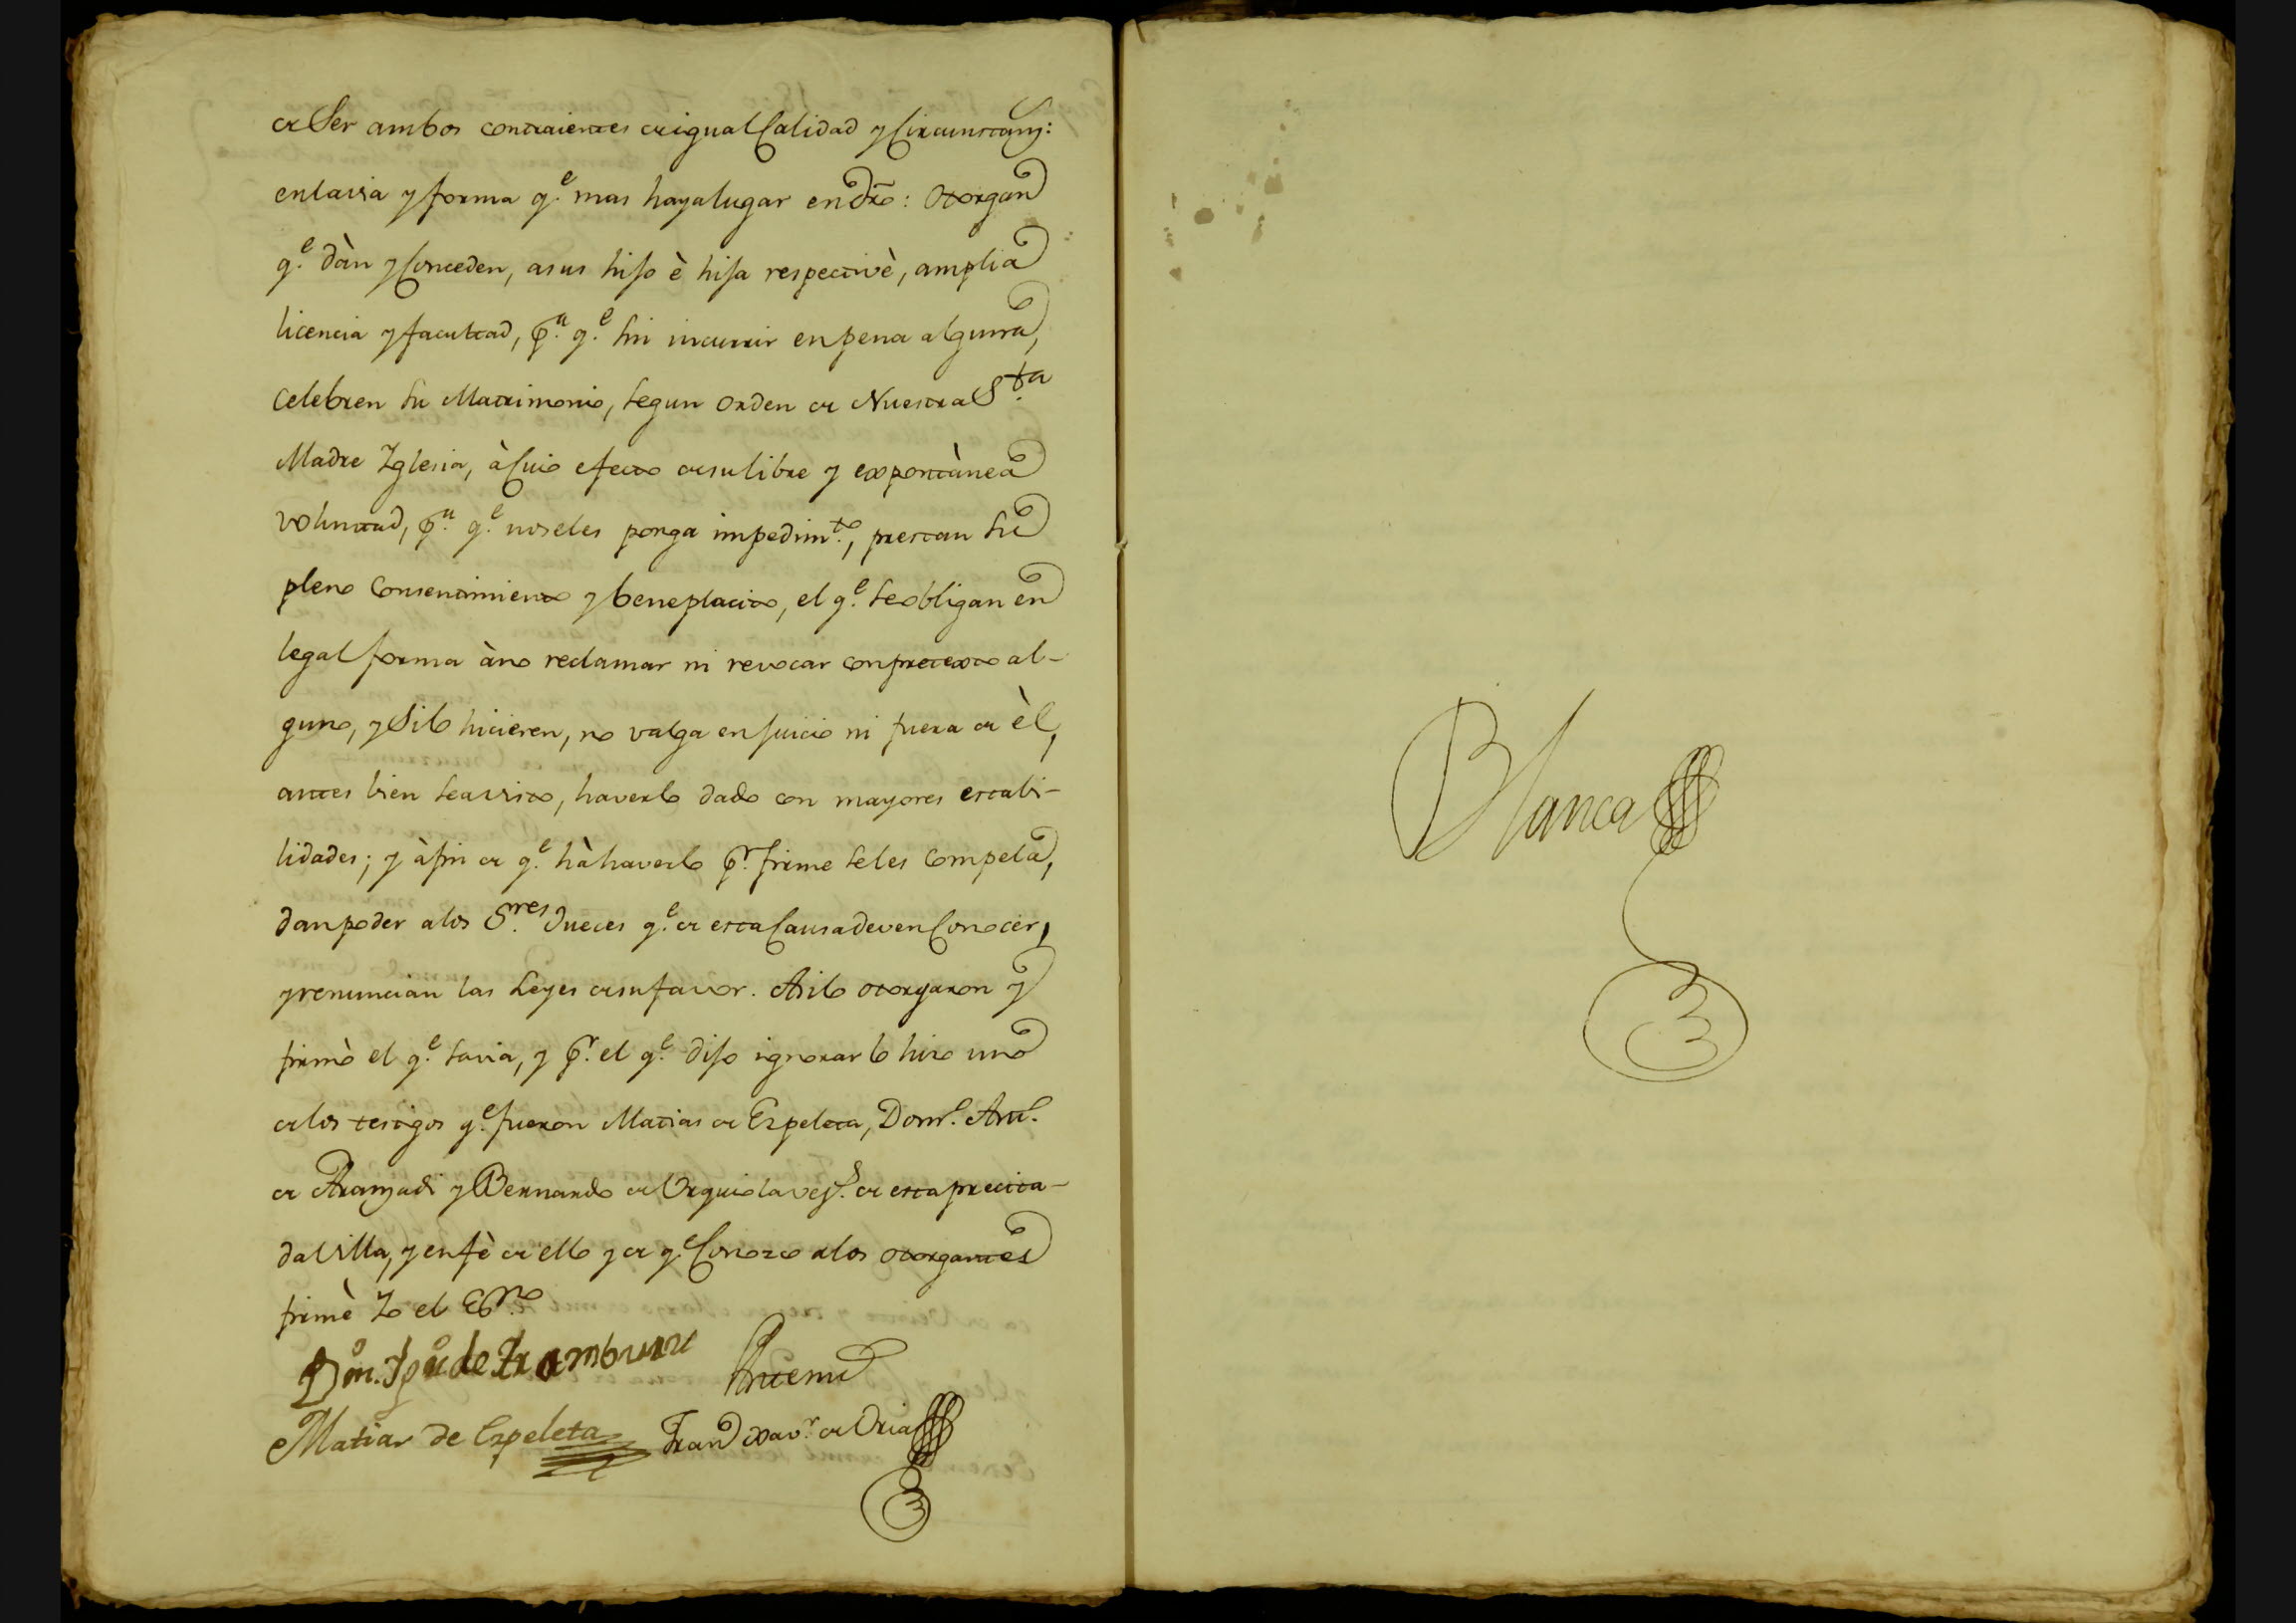 de Ser ambos contraientes de igual Calidad y Circunstanz:
en la via y forma q.e mas haya lugar en dro: Otorgan
q.e dàn y Conceden, a sus hijo è hija respectivè, amplia
licencia y facultad, p.a q.e sin incurrir en pena alguna,
celebren su Matrimonio, segun orden de Nuestra S.ta
Madre Iglesia, à Cuio efecto de su libre y expontànea
voluntad, p.a q.e no se les ponga impedim.to, prestan su
pleno Consentimiento y beneplacito, el q.e se obligan en
legal forma à no reclamar ni revocar con pretexto al-
guno, y Si lo hicieren, no valga en juicio ni fuera de èl,
antes bien sea visto, haverlo dado con mayores estabi-
lidades; y à fin de q.e hà haverlo p.r firme se les Compela,
dan poder a los S.res Jueces q.e de esta Causa deven Conocer,
y renuncian las Leyes de su favor. Asi lo otorgaron y
firmò el q.e savia, y p.r el q.e dijo ignorar lo hizo uno
de los testigos q.e fueron Matias de Ezpeleta, Dom.l Ant.l
de Aranzadi y Bernardo de Urquiola vez.s de esta precita-
da Villa, y en fè de ello y de q.e Conozco a los otorgantes
firmè Yo el Ess.no
Don. Jpħ de Iramburu
Ante mi
Matias de Ezpeleta Fran.co Xav.r de Oria
Blanca